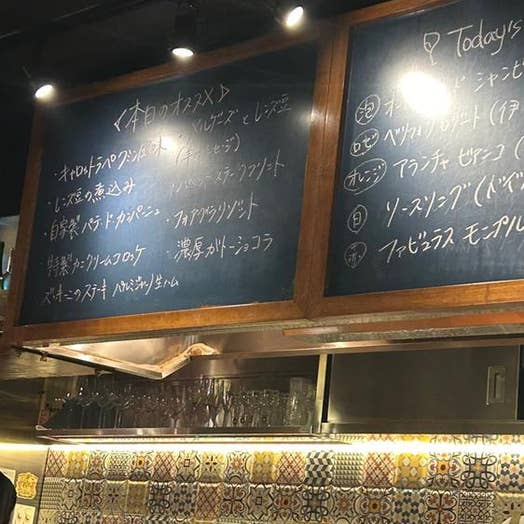 本日のオススメ
・キャロットラペ クミン風味
・レンズ豆の煮込み
・自家製パテ・ド・カンパーニュ
・特製カニクリームコロッケ
ズッキーニのステーキ パルミジャーノ 生ハム
メルゲーズとレンズ豆
ステークフリット
・フォアグラリゾット
・濃厚ガトーショコラ
Today's
泡
ロゼ
オレンジ アランチャ ビアンコ
白 リースリング
赤 ファビュラス モンプル